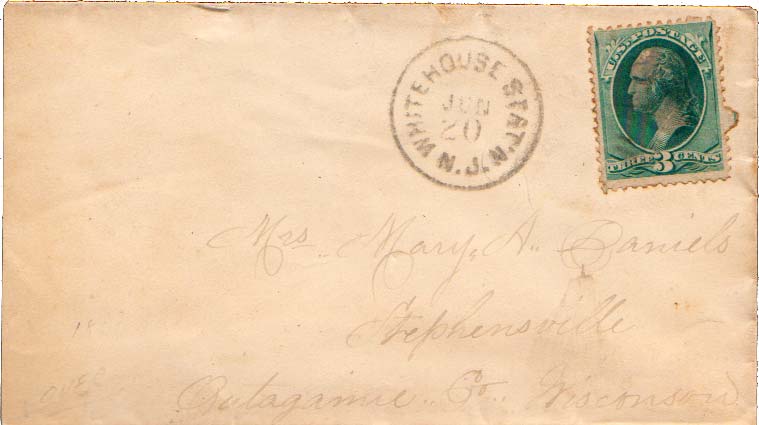 U.S. POSTAGE
THREE 3 CENTS
WHITEHOUSE STAT'N N.J.
JUN
20
Mrs. Mary, A.. Daniels
Stephensville
Outagamie.. Co.. Wisconsin
OVER